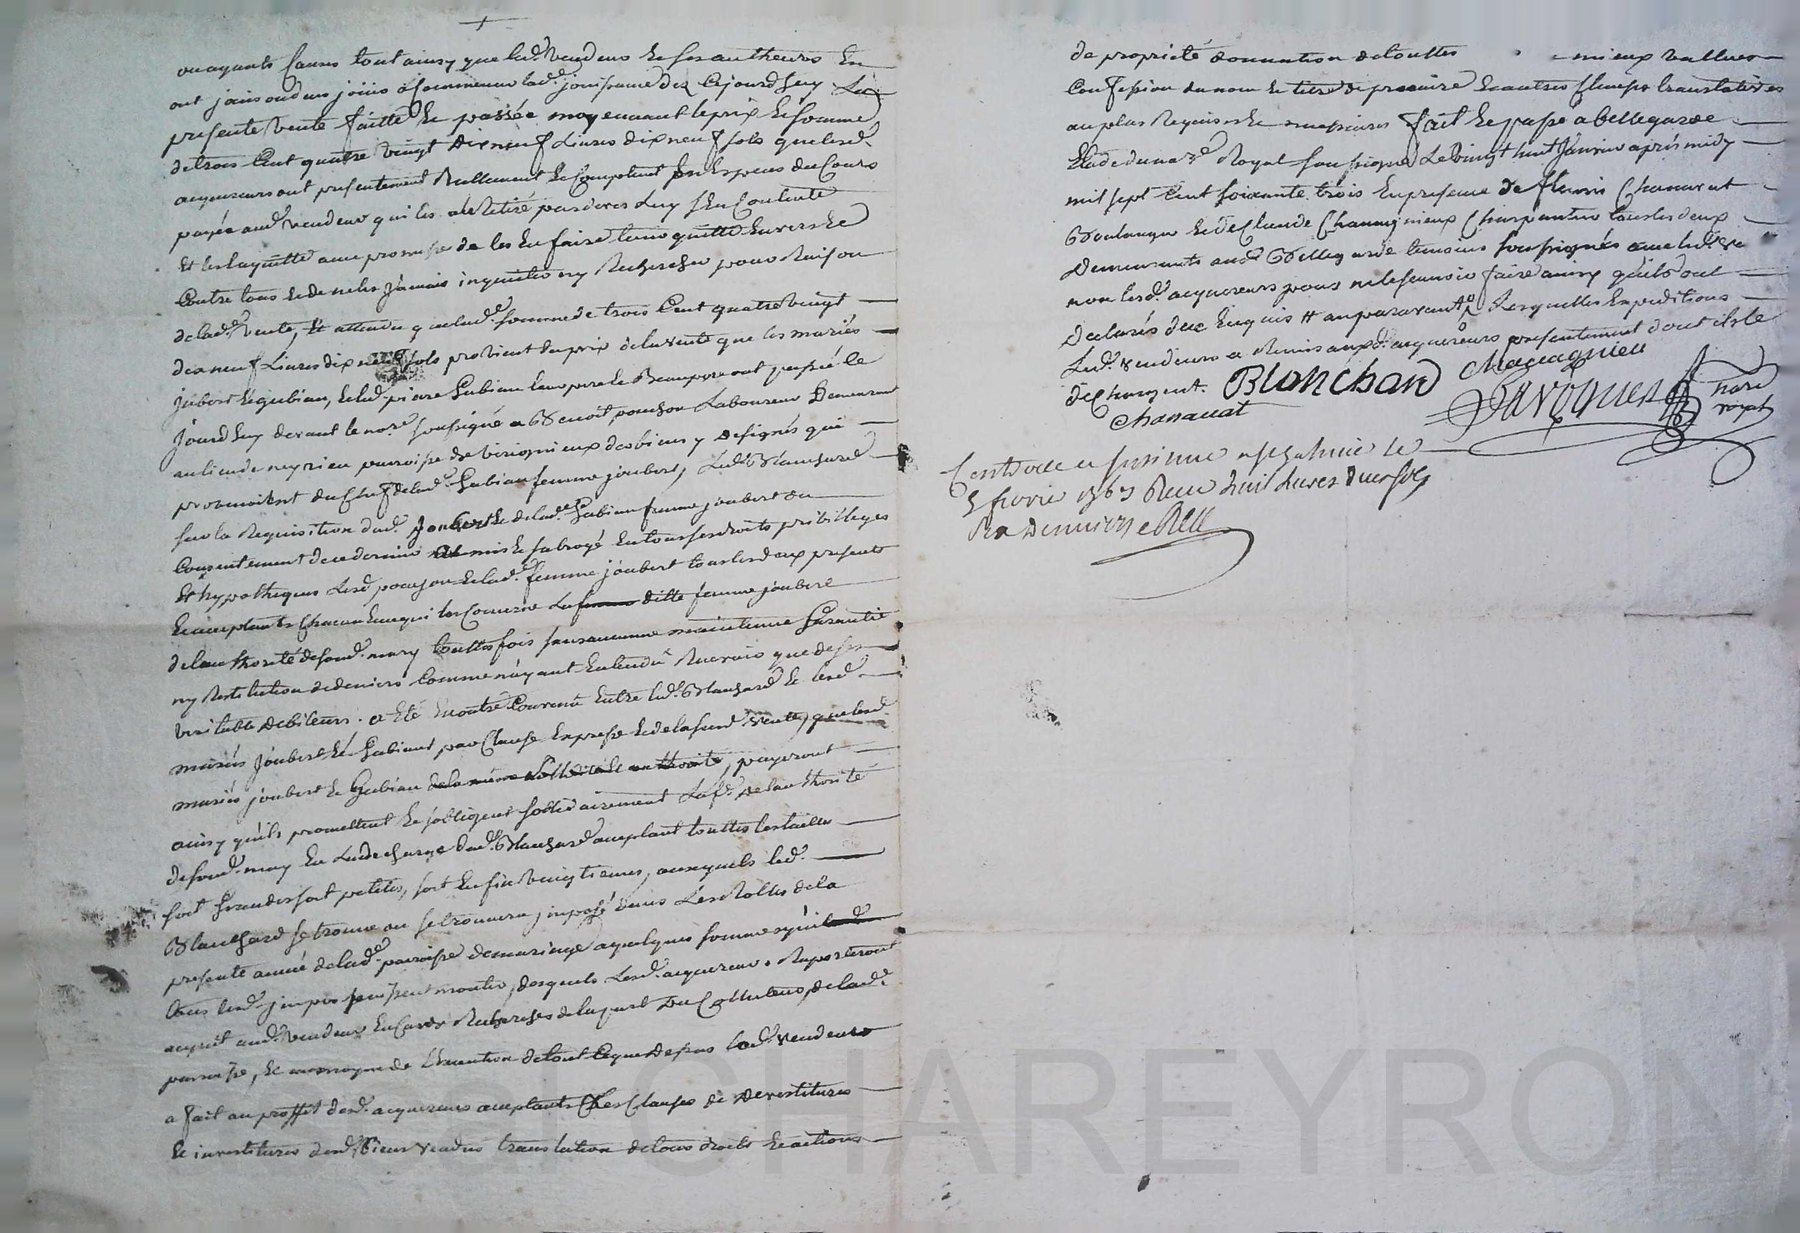 ou ayants Causes tout ainsy que led. Vendeur Et ses autheurs En
ont joüis ou deus joüir à Commencer lad. joüissance dez Cejourdhuy La
presente Vente faitte Et passée moyennant le prix Et somme
de trois Cent quatre vingt Dix neuf Livres dix neuf sols que lesd.
acquereurs ont presentement Réellement Et Comptant En Especes du Cours
payée aud. Vendeur qui les a Retiré pardevers Luy s'En Contente
Et les En quitte avec promesse de les En faire tenir quitte Envers Et
Contre tous Et de ne les jamais inquietter ny Rechercher pour Raison
de lad. Vente, Et attendu que lad. somme de trois Cent quatre vingt
dix neuf Livres dix neuf sols provient du prix de la vente que les mariés
joubert Et gubian, Et led. pierre Gubian leur pere Et Beaupere ont passé Ce
jourdhuy devant le no.re soussigné a Benoit pouson Laboureur Demeurant
au lieu de neyrieu parroisse de virignieux des biens y designés qui
provenoient du Chef de lad. Gubian femme joubert, Led. Blanchard
sur la Requisition dud. Joubert Et de lad. Gubian femme joubert du
Consentement de ce dernier a mis Et subrogé En tous ses droits privilleges
Et hypotheques Led. pouson Et lad. femme joubert tous les deux presents
Et acceptants Chacun En ce qui les Concerne La ditte femme joubert
de l'authorité de sond. mary touttes fois sans aucune maintenue Garantie
ny Restitution de deniers Comme n'ayant Entendu Recevoir que de ses
veritable debiteurs. a Eté En outre Convenu Entre led. Blanchard Et lesd.
mariés joubert Et Gubian, par Clause Expresse Et de lad. vente, que lesd.
mariés joubert Et Gubian de la même authorité, payeront
ainsy qu'ils promettent Et s'obligent sollidairement Lad. De l'authorité
de sond. mary En La decharge dud. Blanchard acceptant touttes les tailles
soit Grandes soit petites, soit En fin vingtiemes, auxquels led.
Blanchard se trouve ou se trouvera imposé dans Les Rolles de la
presente année de lad. parroisse de maringe a quelques sommes qu'il
tous lesd. impos puissent monter, desquels Lesd. acquereurs Raporteront
acquit aud. vendeur En Cas de Recherches de la part Du Collecteur de lad.
parroisse, Et au moyen de l'Execution de tout Ce que Dessus Led. vendeur
a fait au proffit desd. acquereurs acceptants Les Clauses de Devestitures
Et investitures desd. Biens vendus translation de tous droits Et actions
de propriété donnation de touttes mieux vallues
Confession du nom Et titre de precaire Et autres Clauses translatives
au plus Requises Et necessaires fait Et passé a bellegarde
Etude du no.re Royal soussigné Le vingt huit Janvier après midy
mil sept Cent soixante trois En presence de fleurie Chanavat
Boulanger Et de Claude Chamagnieux Charpentier tous les deux
Demeurants aud. Bellegarde temoins soussignés avec led. ve
non lesd. acquereurs pour ne le sçavoir faire ainsy qu'ils ont
declarés de ce Enquis H auparavant Lesquelles Expeditions
Led. vendeur a Remis auxd. acquereurs presentement dont ils le
déchargent. Blanchard Magagnieu
Chanavat Davoquier no.re royal
Controllé a le
5 fevrier 1763 Receu huit livres deux sols